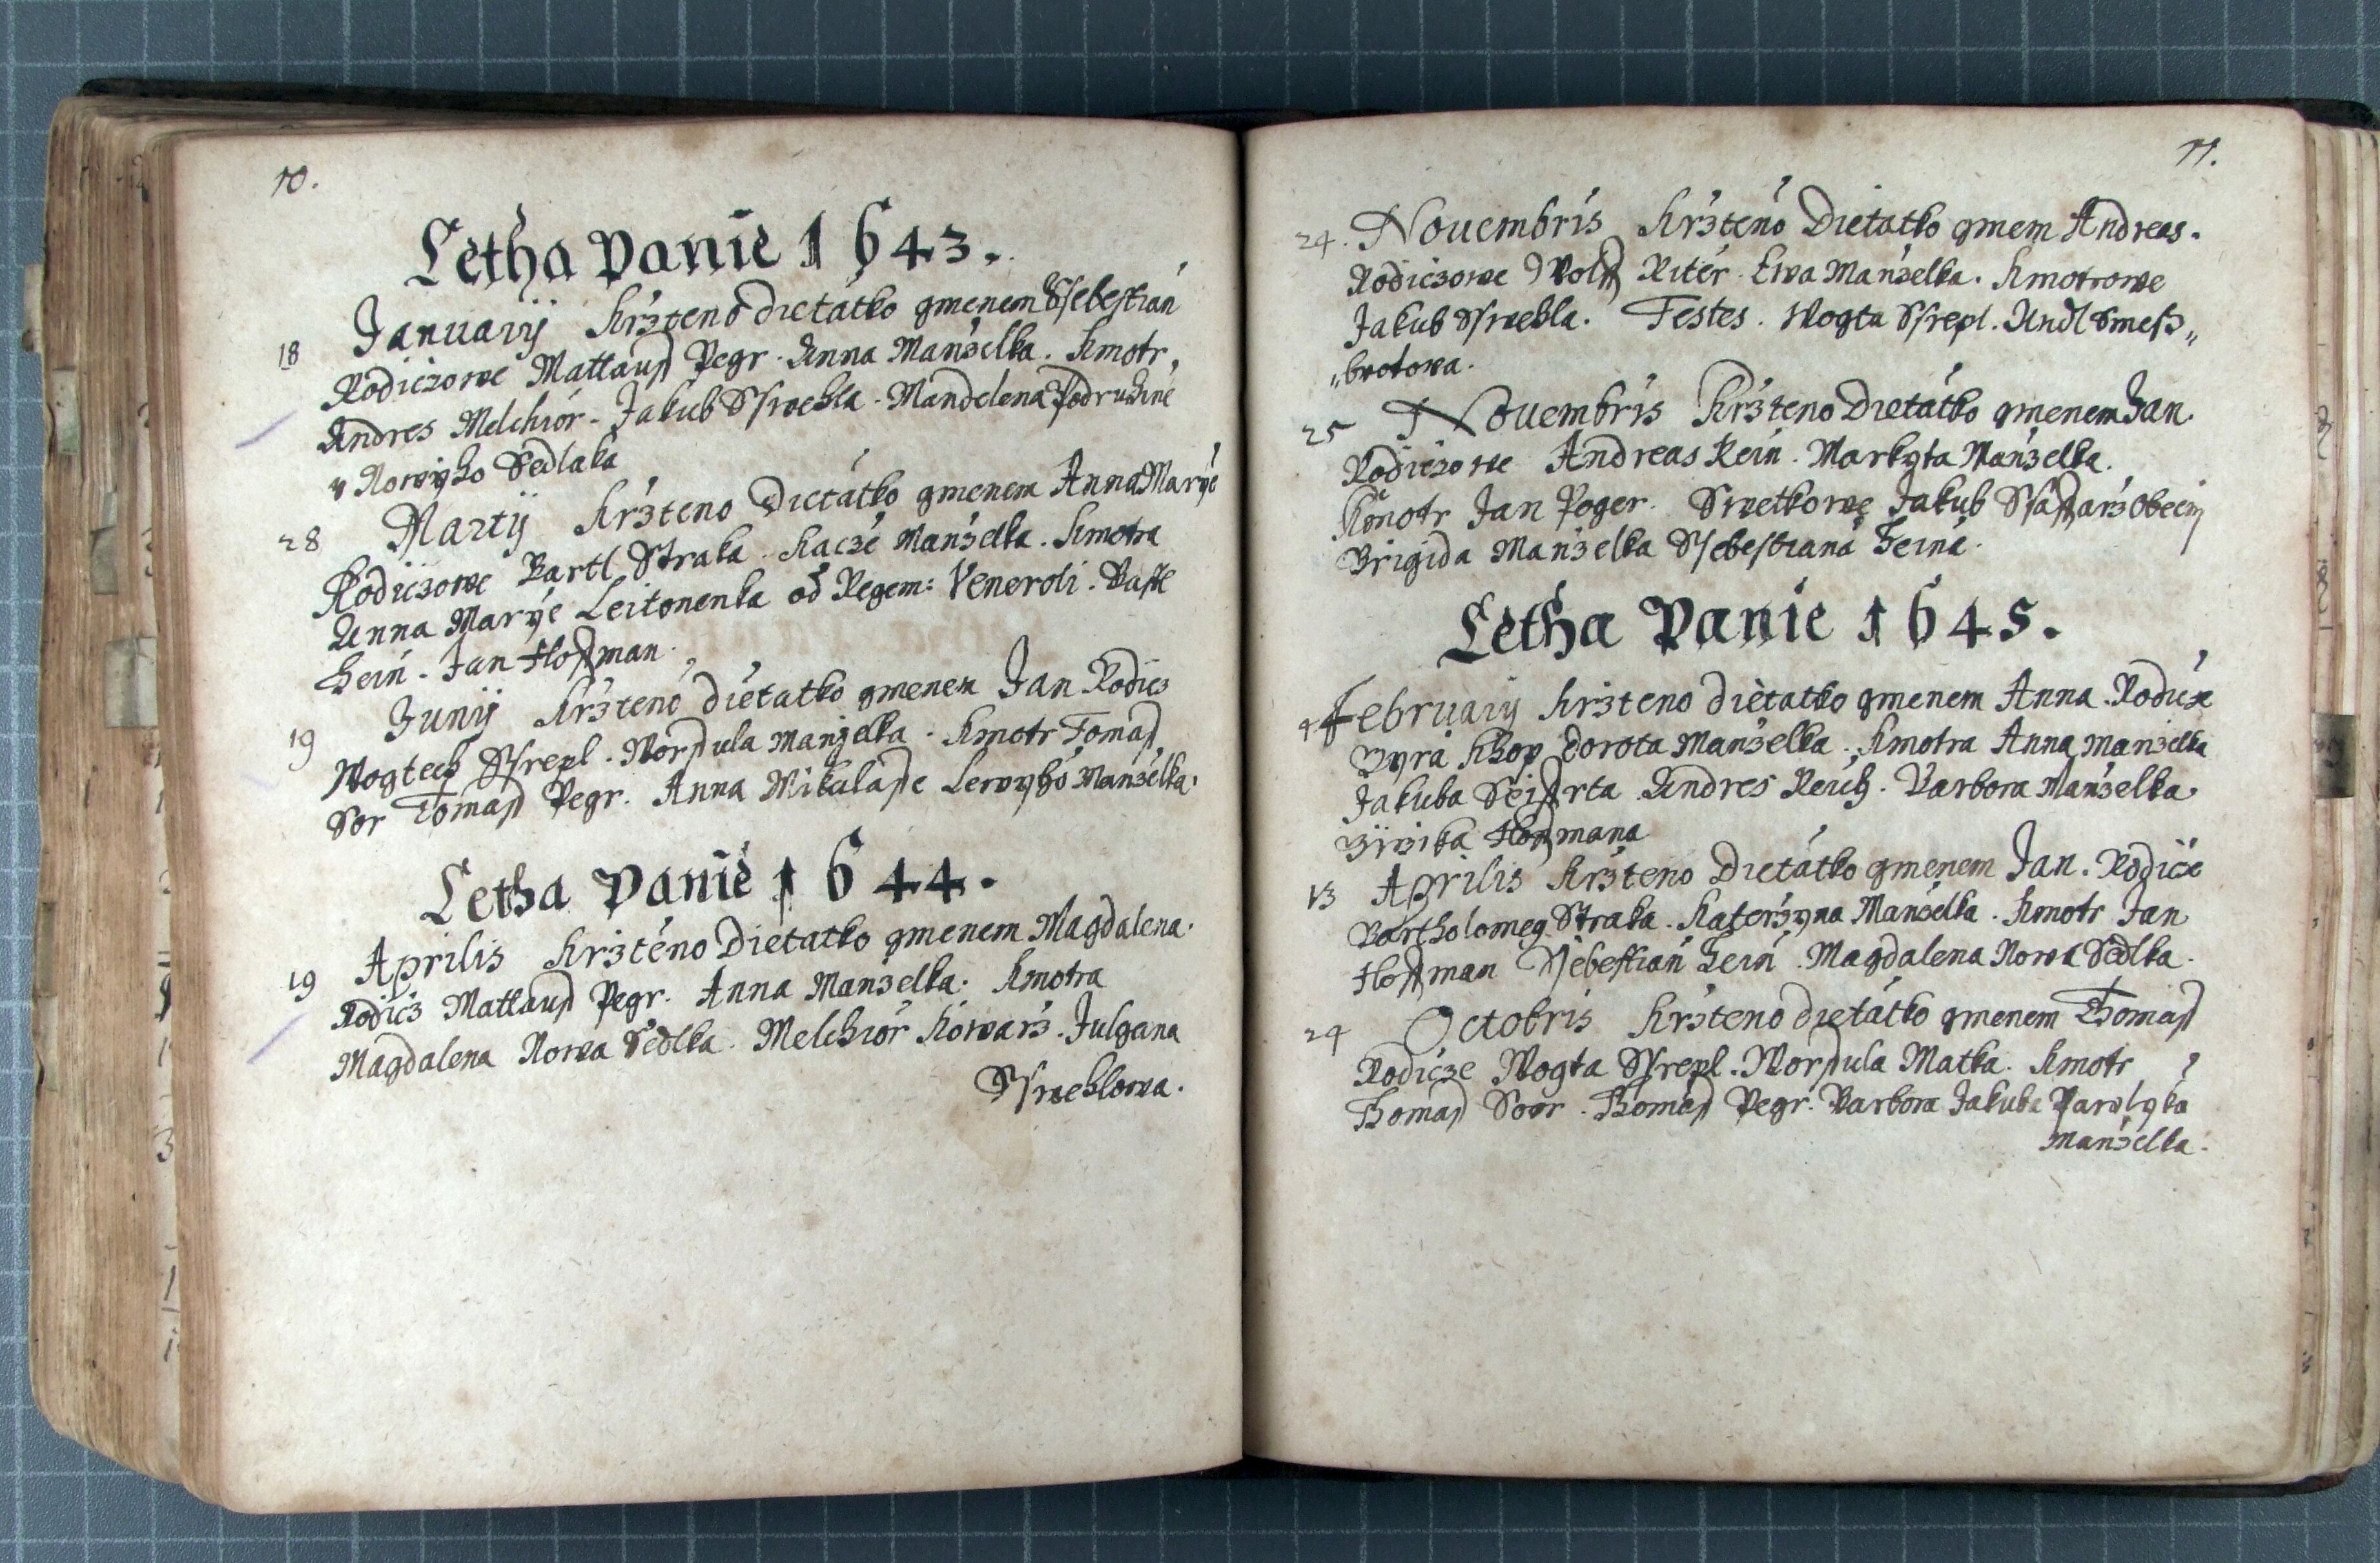 10.
Letha Panie 1643.
18 Januarij Krzteno dietatko gmenem Ssebestian
Rodiczowe Mattauss Pegr. Anna Manzelka. Kmotr,
Andres Melchior - Jakub Sswehla - Mandelena Podruhine
v Nowyho Sedlaka
28 Martij Krzteno Dietatko gmenem Anna Marye
Rodiczowe Bartl Straka. Kacze Manzelka. Kmotra
Anna Marye Leitonenka od Regem: Veneroli. Basste
Hein. Jan Hoffman.
19 Junij Krzteno dietatko gmenem Jan Rodicz
Wogtech Ssrepl. Worssula manzelka. Kmotr Tomass
Sor Tomass Pegr. Anna Mikulasse Lewyho Manzelka.
Letha Panie 1644.
19 Aprilis Krzteno Dietatko gmenem Magdalena.
Rodicz Mattauss Pegr. Anna Manzelka. Kmotra
Magdalena Nowa Sedlka. Melchior Kowarz. Julgana
Sswehlowa.
11.
24. Nouembris Krzteno Dietatko gmem Andreas.
Rodiczowe Wolff Riter. Ewa Manzelka. Kmotrowe
Jakub Sswehla. Testes. Wogta Ssrepl. Andl
„brotowa.
25 Nouembris Krzteno Dietatko gmenem Jan.
Rodiczowe Andreas Rein. Markyta Manzelka.
Kmotr Jan Poger. Swetkowe Jakub Ssaffarz Obecnj
Brigida Manzelka Ssebestiana Heina.
Letha Panie 1645.
Februarij Krzteno dietatko gmenem Anna. Rodicze
Dorota Manzelka. Kmotra Anna manzelka
Jakuba Seifferta Andres Reich. Barbora Manzelka
Hoffmana
13 Aprilis Krzteno Dietatko gmenem Jan. Rodicze
Bartholomeg Straka. Katerzyna Manzelka. Kmotr Jan
Hoffman Ssebestian Hein. Magdalena Nowa Sedlka.
24 Octobris Krzteno dietatko gmenem Thomass
Rodicze Wogta Ssrepl. Worssula Matka. Kmotr
Thomass Soor. Thomass Pegr. Barbora Jakuba Pawlyka
manzelka.